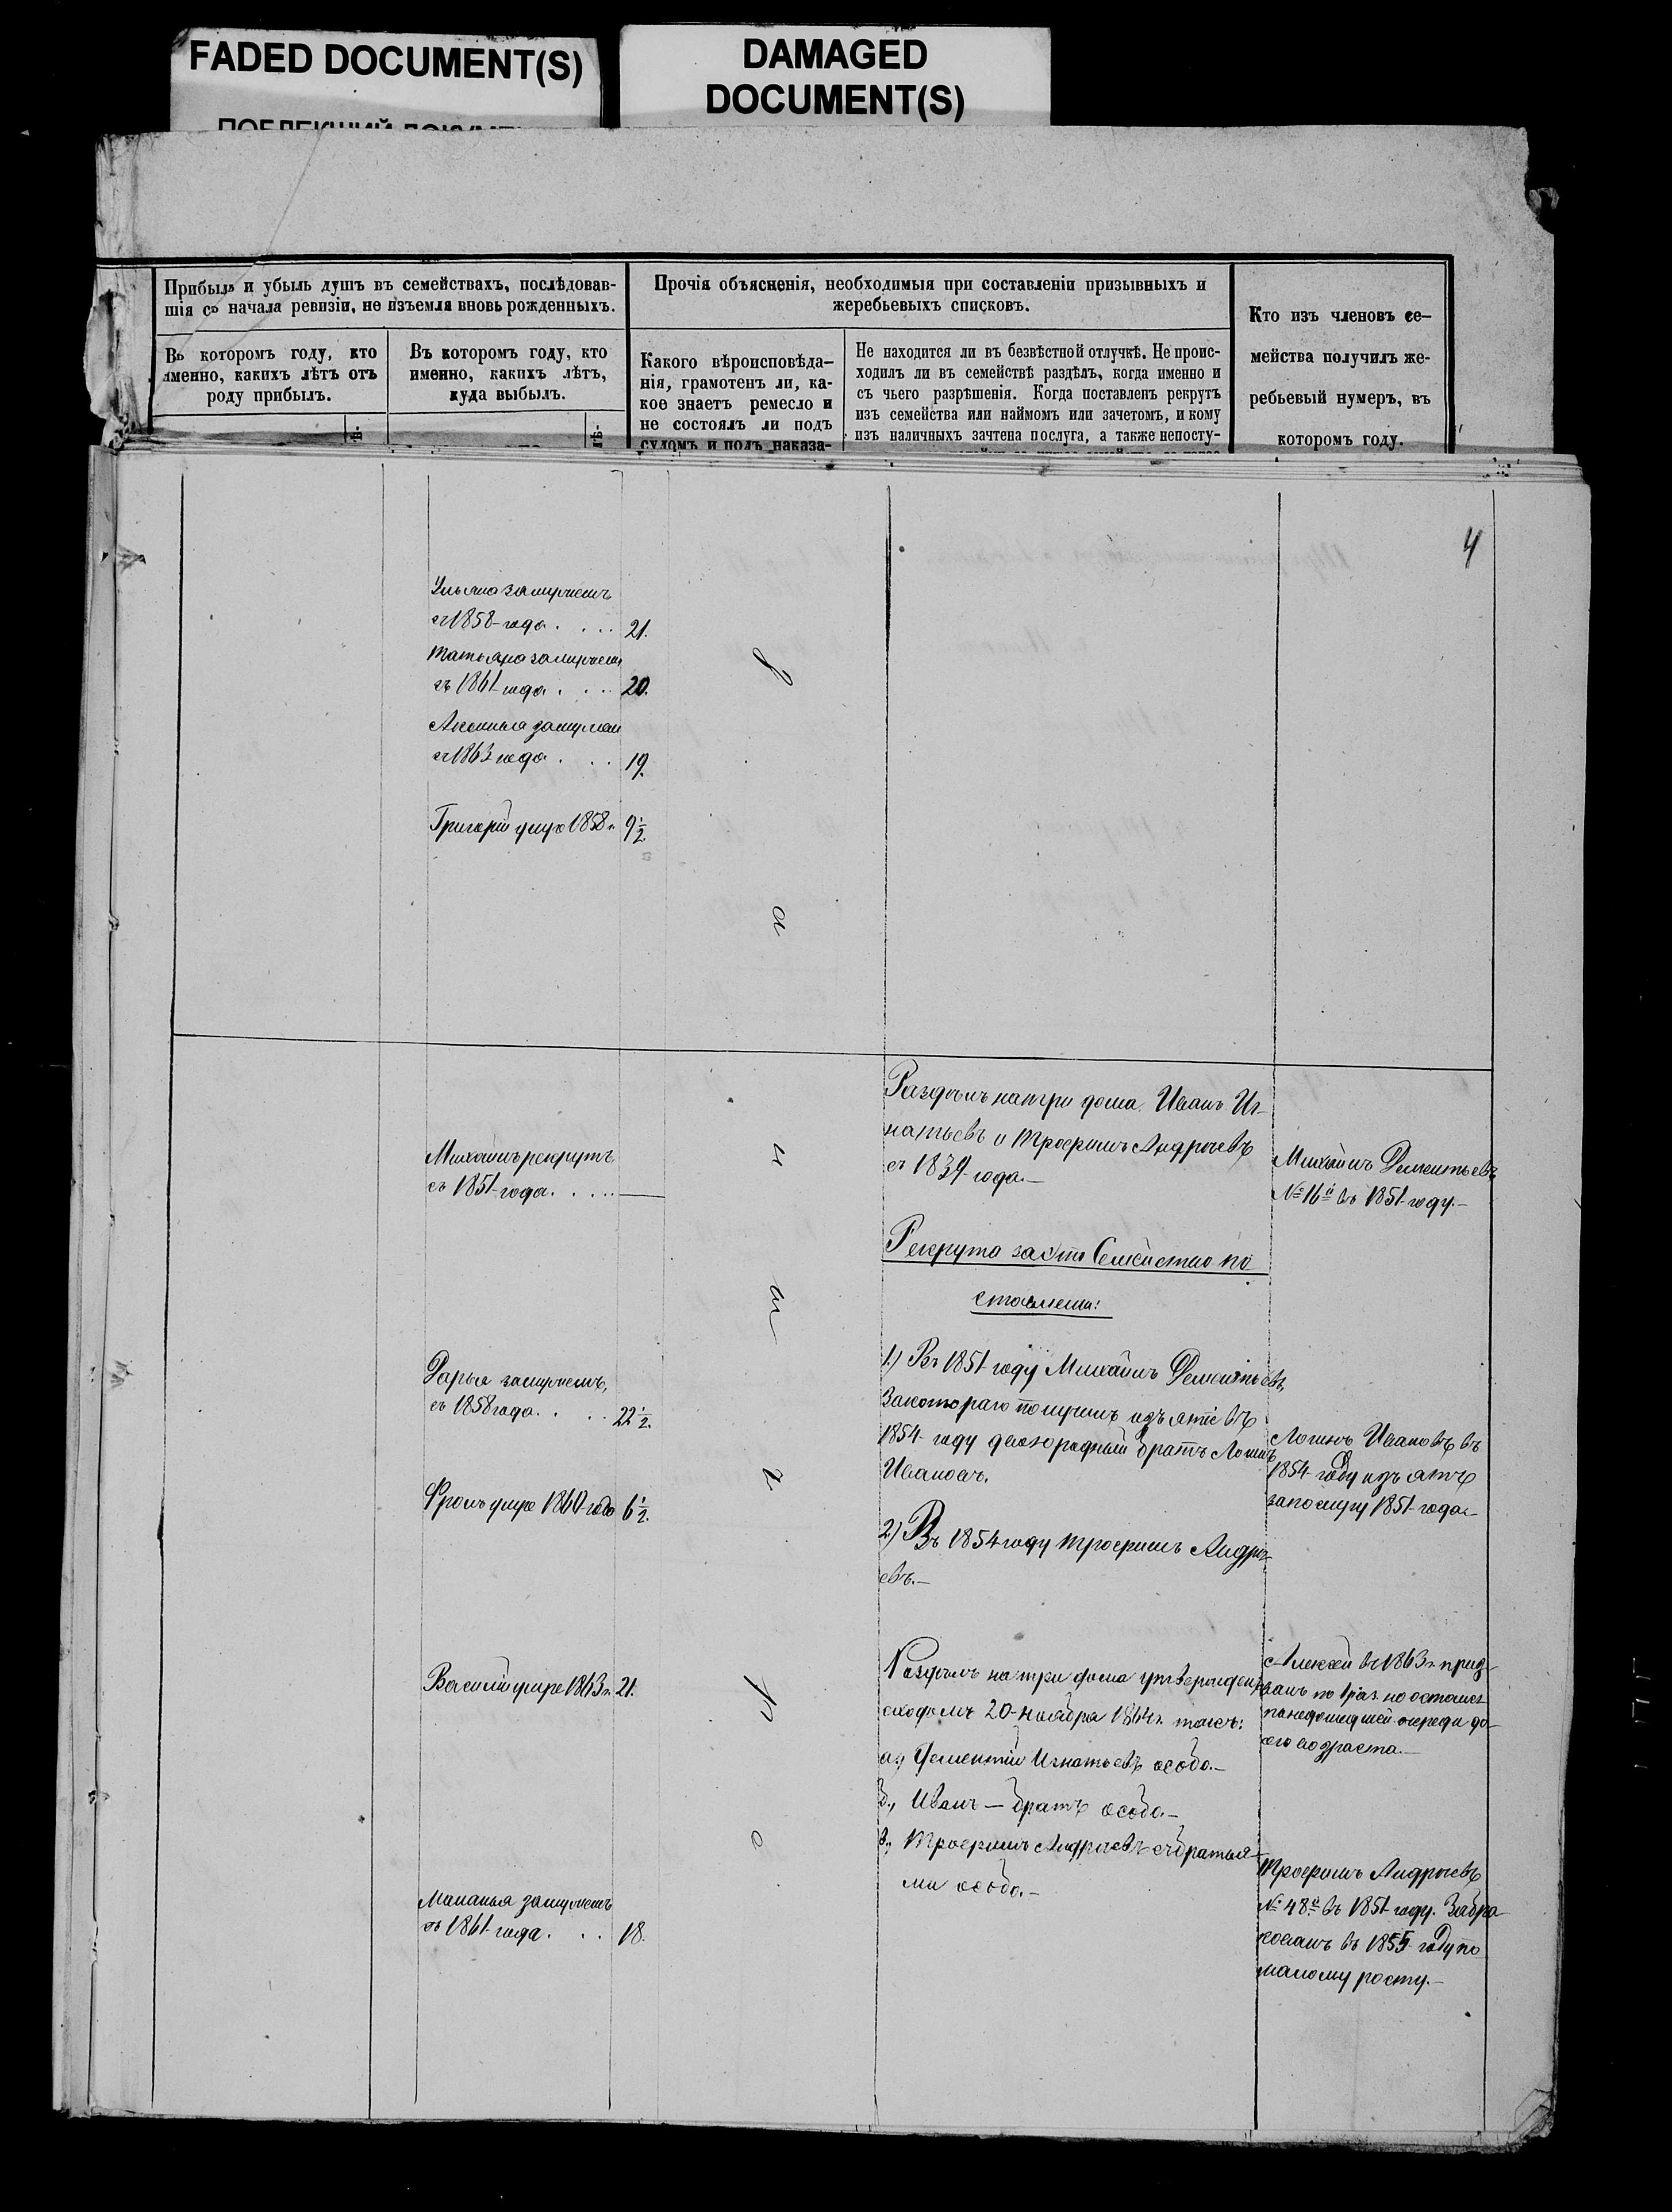 FADED DOCUMENT(S)
DAMAGED
DOCUMENT(S)
Прибыль и убыль душъ въ семействахъ, послѣдовав-
шія съ начала ревизіи, не изъемля вновь рожденныхъ.
Въ которомъ году, кто
именно, какихъ лѣтъ отъ
роду прибылъ.
Въ которомъ году, кто
именно, какихъ лѣтъ,
куда выбылъ.
Прочія объясненія, необходимыя при составленіи призывныхъ и
жеребьевыхъ списковъ.
Какого вѣроисповѣда-
нія, грамотенъ ли, ка-
кое знаетъ ремесло и
не состоялъ ли подъ
судомъ и подъ наказа-
Не находится ли въ безвѣстной отлучкѣ. Не проис-
ходилъ ли въ семействѣ раздѣлъ, когда именно и
съ чьего разрѣшенія. Когда поставленъ рекрутъ
изъ семейства или наймомъ или зачетомъ, и кому
изъ наличныхъ зачтена послуга, а также непосту-
Кто изъ членовъ се-
мейства получилъ же-
ребьевый нумеръ, въ
которомъ году.
4
Ульяна замужемъ
съ 1858 года . . . . 21.
Татьяна замужемъ
съ 1861 года . . . . 20.
Аксинья замужем
съ 1863 года . . . . 19.
Григорій умре 1858 г. 9 1/2
Михаилъ рекрутъ
съ 1851 года . . . . . —
Дарья замужемъ,
съ 1858 года . . . . 22 1/2.
Фролъ умре 1860 года 6 1/2.
Василій умре 1863 г. 21.
Маланья замужемъ
съ 1861 года . . . 18.
Раздѣлъ на три дома. Иванъ Иг-
натьевъ и Трофимъ Андреевъ
съ 1839 года.—
Рекрута за это Семейство по
ставлены:
1.) Въ 1851 году Михаилъ Дементьевъ,
за котораго получилъ изъятіе въ
1854 году двоюродный братъ Логинъ
Ивановъ.
2.) Въ 1854 году Трофимъ Андре-
евъ.—
Раздѣлъ на три дома утвержденъ
сходомъ 20 ноября 1864 г. такъ:
а., Дементій Игнатьевъ особо.—
б., Иванъ — братъ особо.—
в., Трофимъ Андреевъ съ братья-
ми особо.—
Михаилъ Дементьевъ
№ 16й въ 1851 году.—
Логинъ Ивановъ въ
1854 году изъятъ
за послугу 1851 года
Алексей въ 1863 г. приз-
ванъ по но осталсь
по недошедшей очереди до
его возраста.—
Трофимъ Андреевъ
№ 48й въ 1851 году. Забра-
кованъ въ 1855 году по
малому росту.—